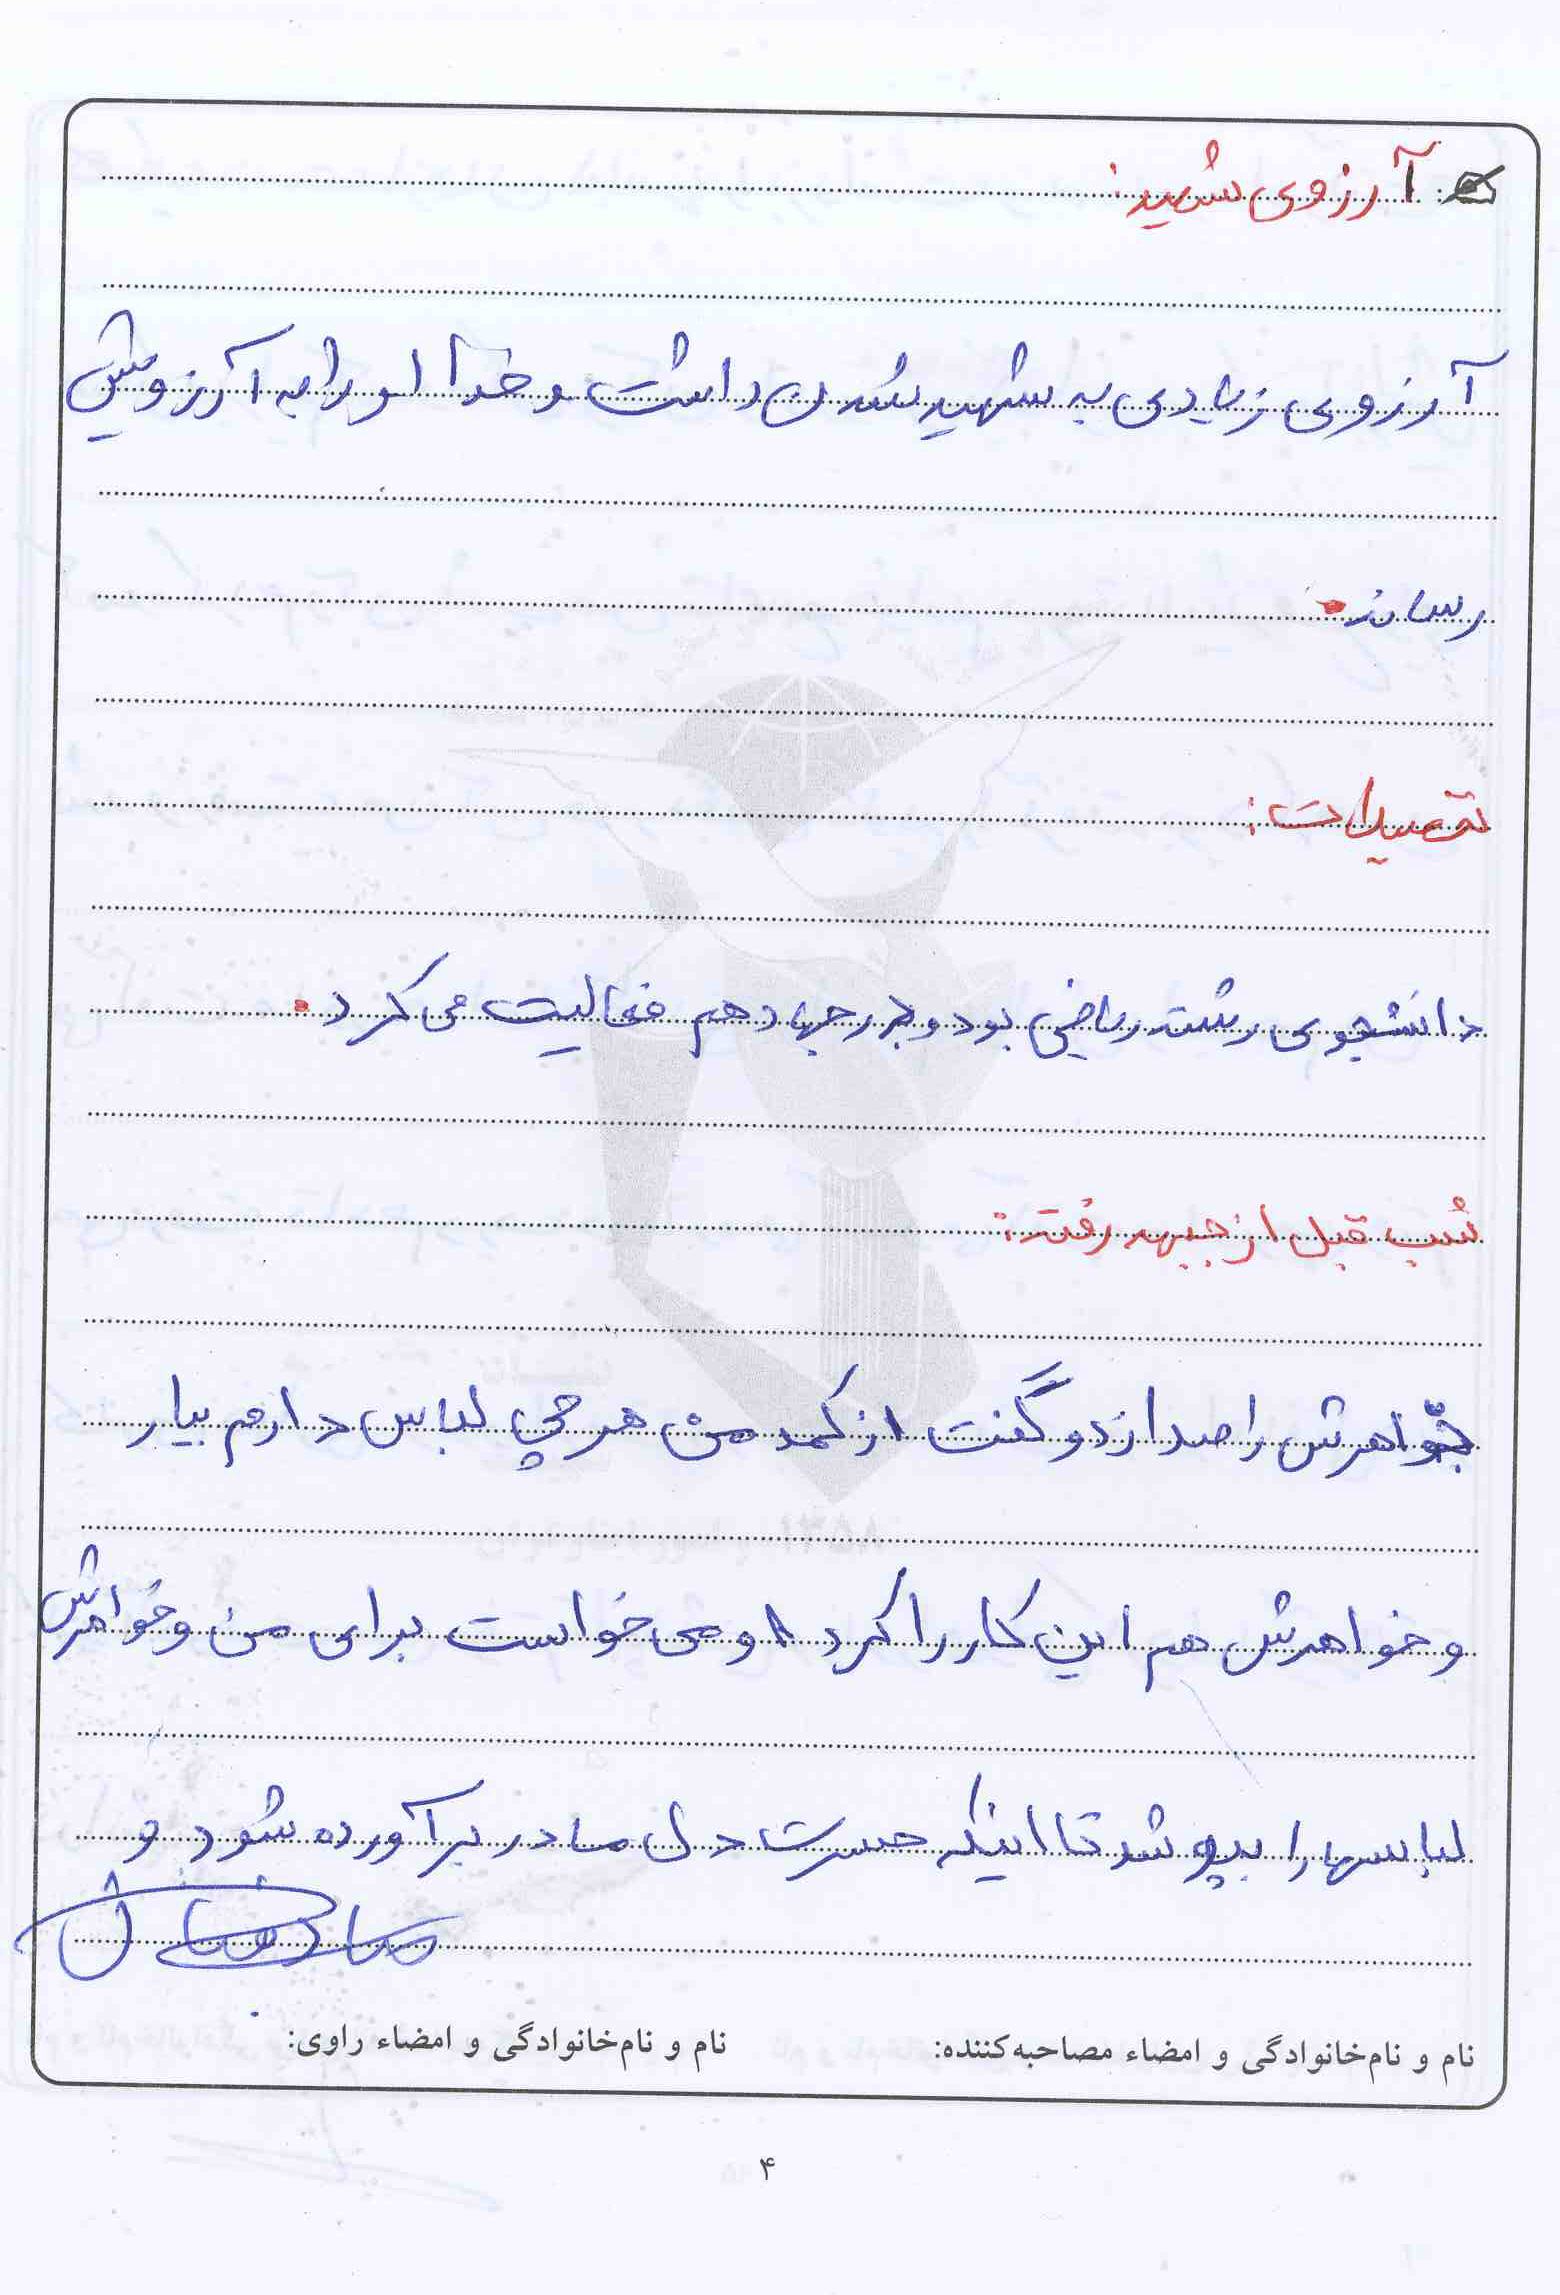 آرزوی شهید:
آرزوی زیادی به شهید شدن داشت و خدا او را به آرزویش
رساند.
تحصیلات:
دانشجوی رشته ریاضی بود و در جهاد هم فعالیت می کرد.
شب قبل از جبهه رفتن:
خواهرش را صدا زد و گفت از کمد من هر چی لباس دارم بیار
و خواهرش هم این کار را کرد او می خواست برای من و خواهرش
لباسها را بپوشد تا اینکه حسرت دل مادر برآورده شود و
نام و نام‌خانوادگی و امضاء مصاحبه‌کننده: نام و نام‌خانوادگی و امضاء راوی:
۴